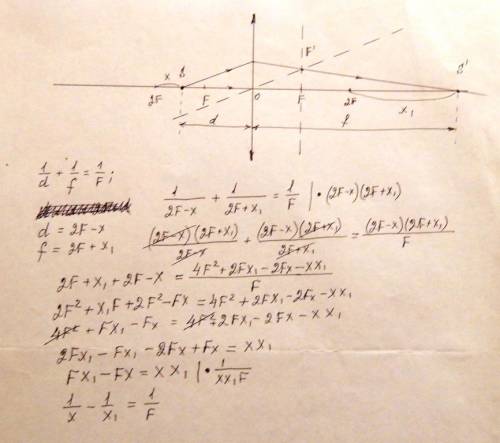 x S F' S'
2F F O F 2F x₁
d f
1/d + 1/f = 1/F;
1/(2F-x) + 1/(2F+x₁) = 1/F | · (2F-x)(2F+x₁)
d = 2F-x
f = 2F+x₁
(2F-x)(2F+x₁)/(2F-x) + (2F-x)(2F+x₁)/(2F+x₁) = (2F-x)(2F+x₁)/F
2F+x₁+2F-x = (4F²+2Fx₁-2Fx-xx₁)/F
2F²+x₁F+2F²-Fx = 4F²+2Fx₁-2Fx-xx₁
4F²+Fx₁-Fx = 4F²+2Fx₁-2Fx-xx₁
2Fx₁-Fx₁-2Fx+Fx = xx₁
Fx₁-Fx = xx₁ | · 1/(xx₁F)
1/x - 1/x₁ = 1/F